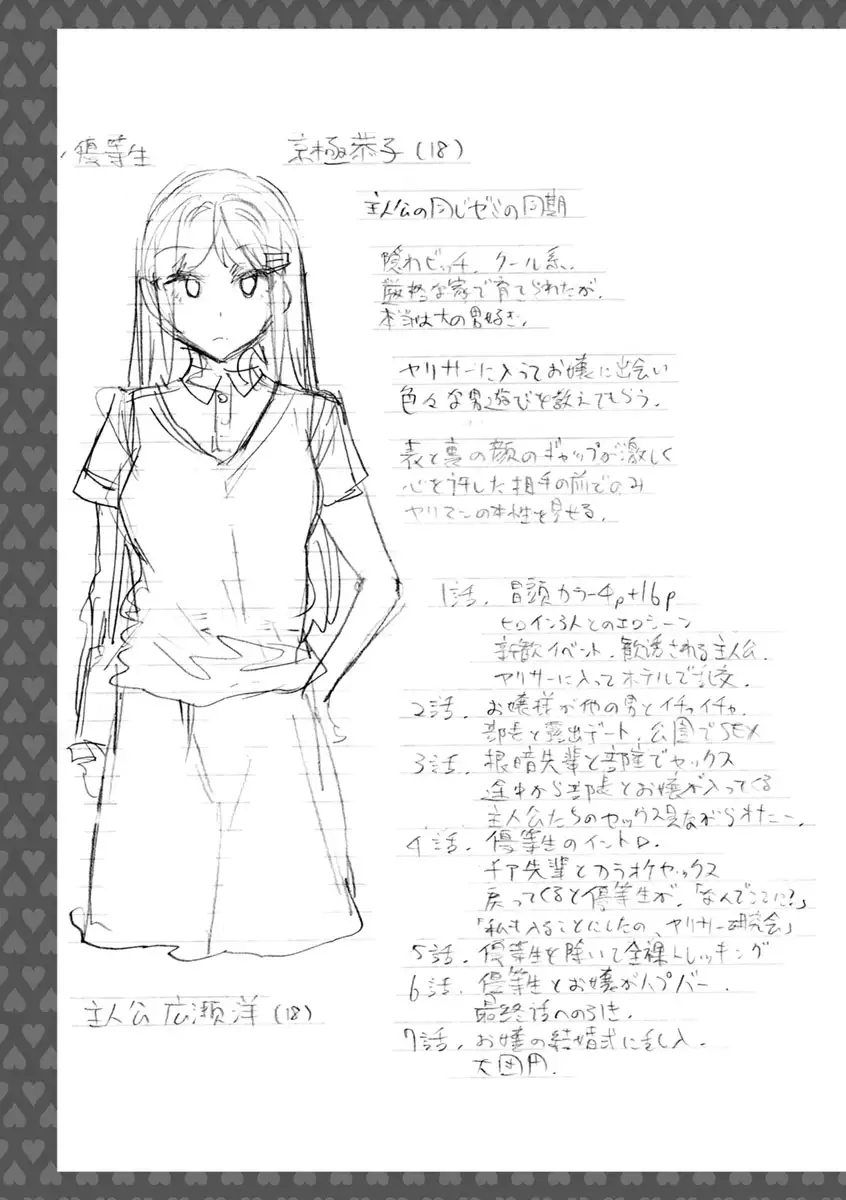 優等生
京極恭子(18)
主人公の同じゼミの同期
隠れビッチ、クール系、
厳格な家で育てられたが、
本当は大の男好き。
ヤリサーに入ってお嬢に出会い
色々な男遊びを教えてもらう。
表と裏の顔のギャップが激しく
心を許した相手の前でのみ
ヤリマンの本性を見せる。
1話、冒頭カラー4p+16p
ヒロイン3人とのエロシーン
新歓イベント、勧誘される主人公、
ヤリサーに入ってホテルで乱交、
2話、お嬢様が他の男とイチャイチャ、
部長と露出デート、公園でSEX
3話、根暗先輩と部室でセックス
途中から部長とお嬢が入ってくる
主人公たちのセックス見ながら
4話、優等生のイントロ、
チア先輩とカラオケセックス
戻ってくると優等生が、「なんでここに?」
「私も入ることにしたの、ヤリサー研究会」
5話、優等生を除いて全裸トレッキング
6話、優等生とお嬢がハプバー、
最終話への引き、
7話、お嬢の結婚式に乱入、
大団円、
主人公 広瀬洋(18)